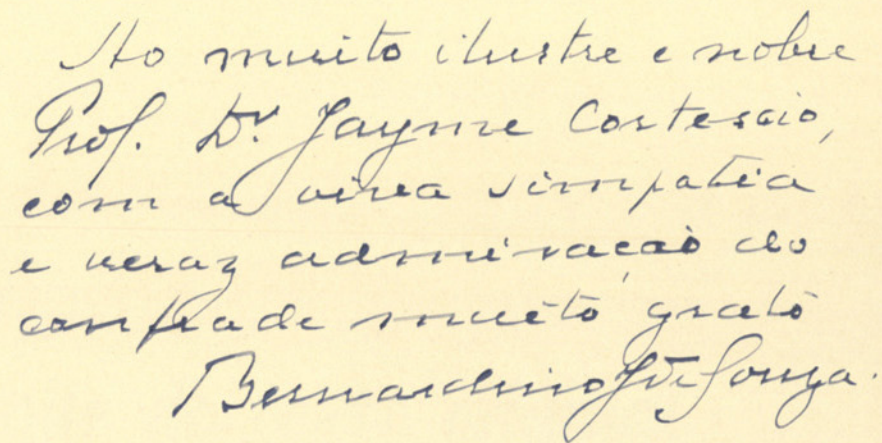 Ao muito ilustre e nobre
Prof. Dr. Jayme Cortesão,
com a viva simpatia
e veraz admiração do
confrade muito grato
Bernardino J. de Souza.